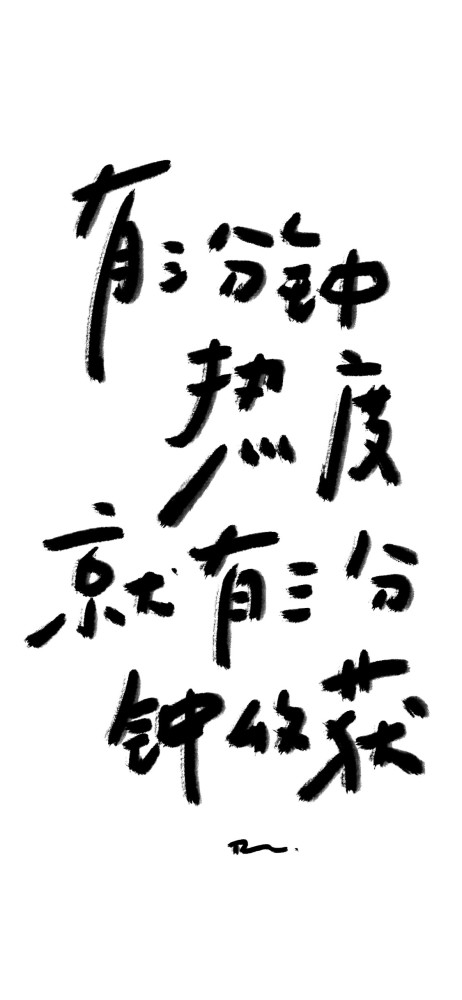 有三分钟
热度
就有三分
钟收获